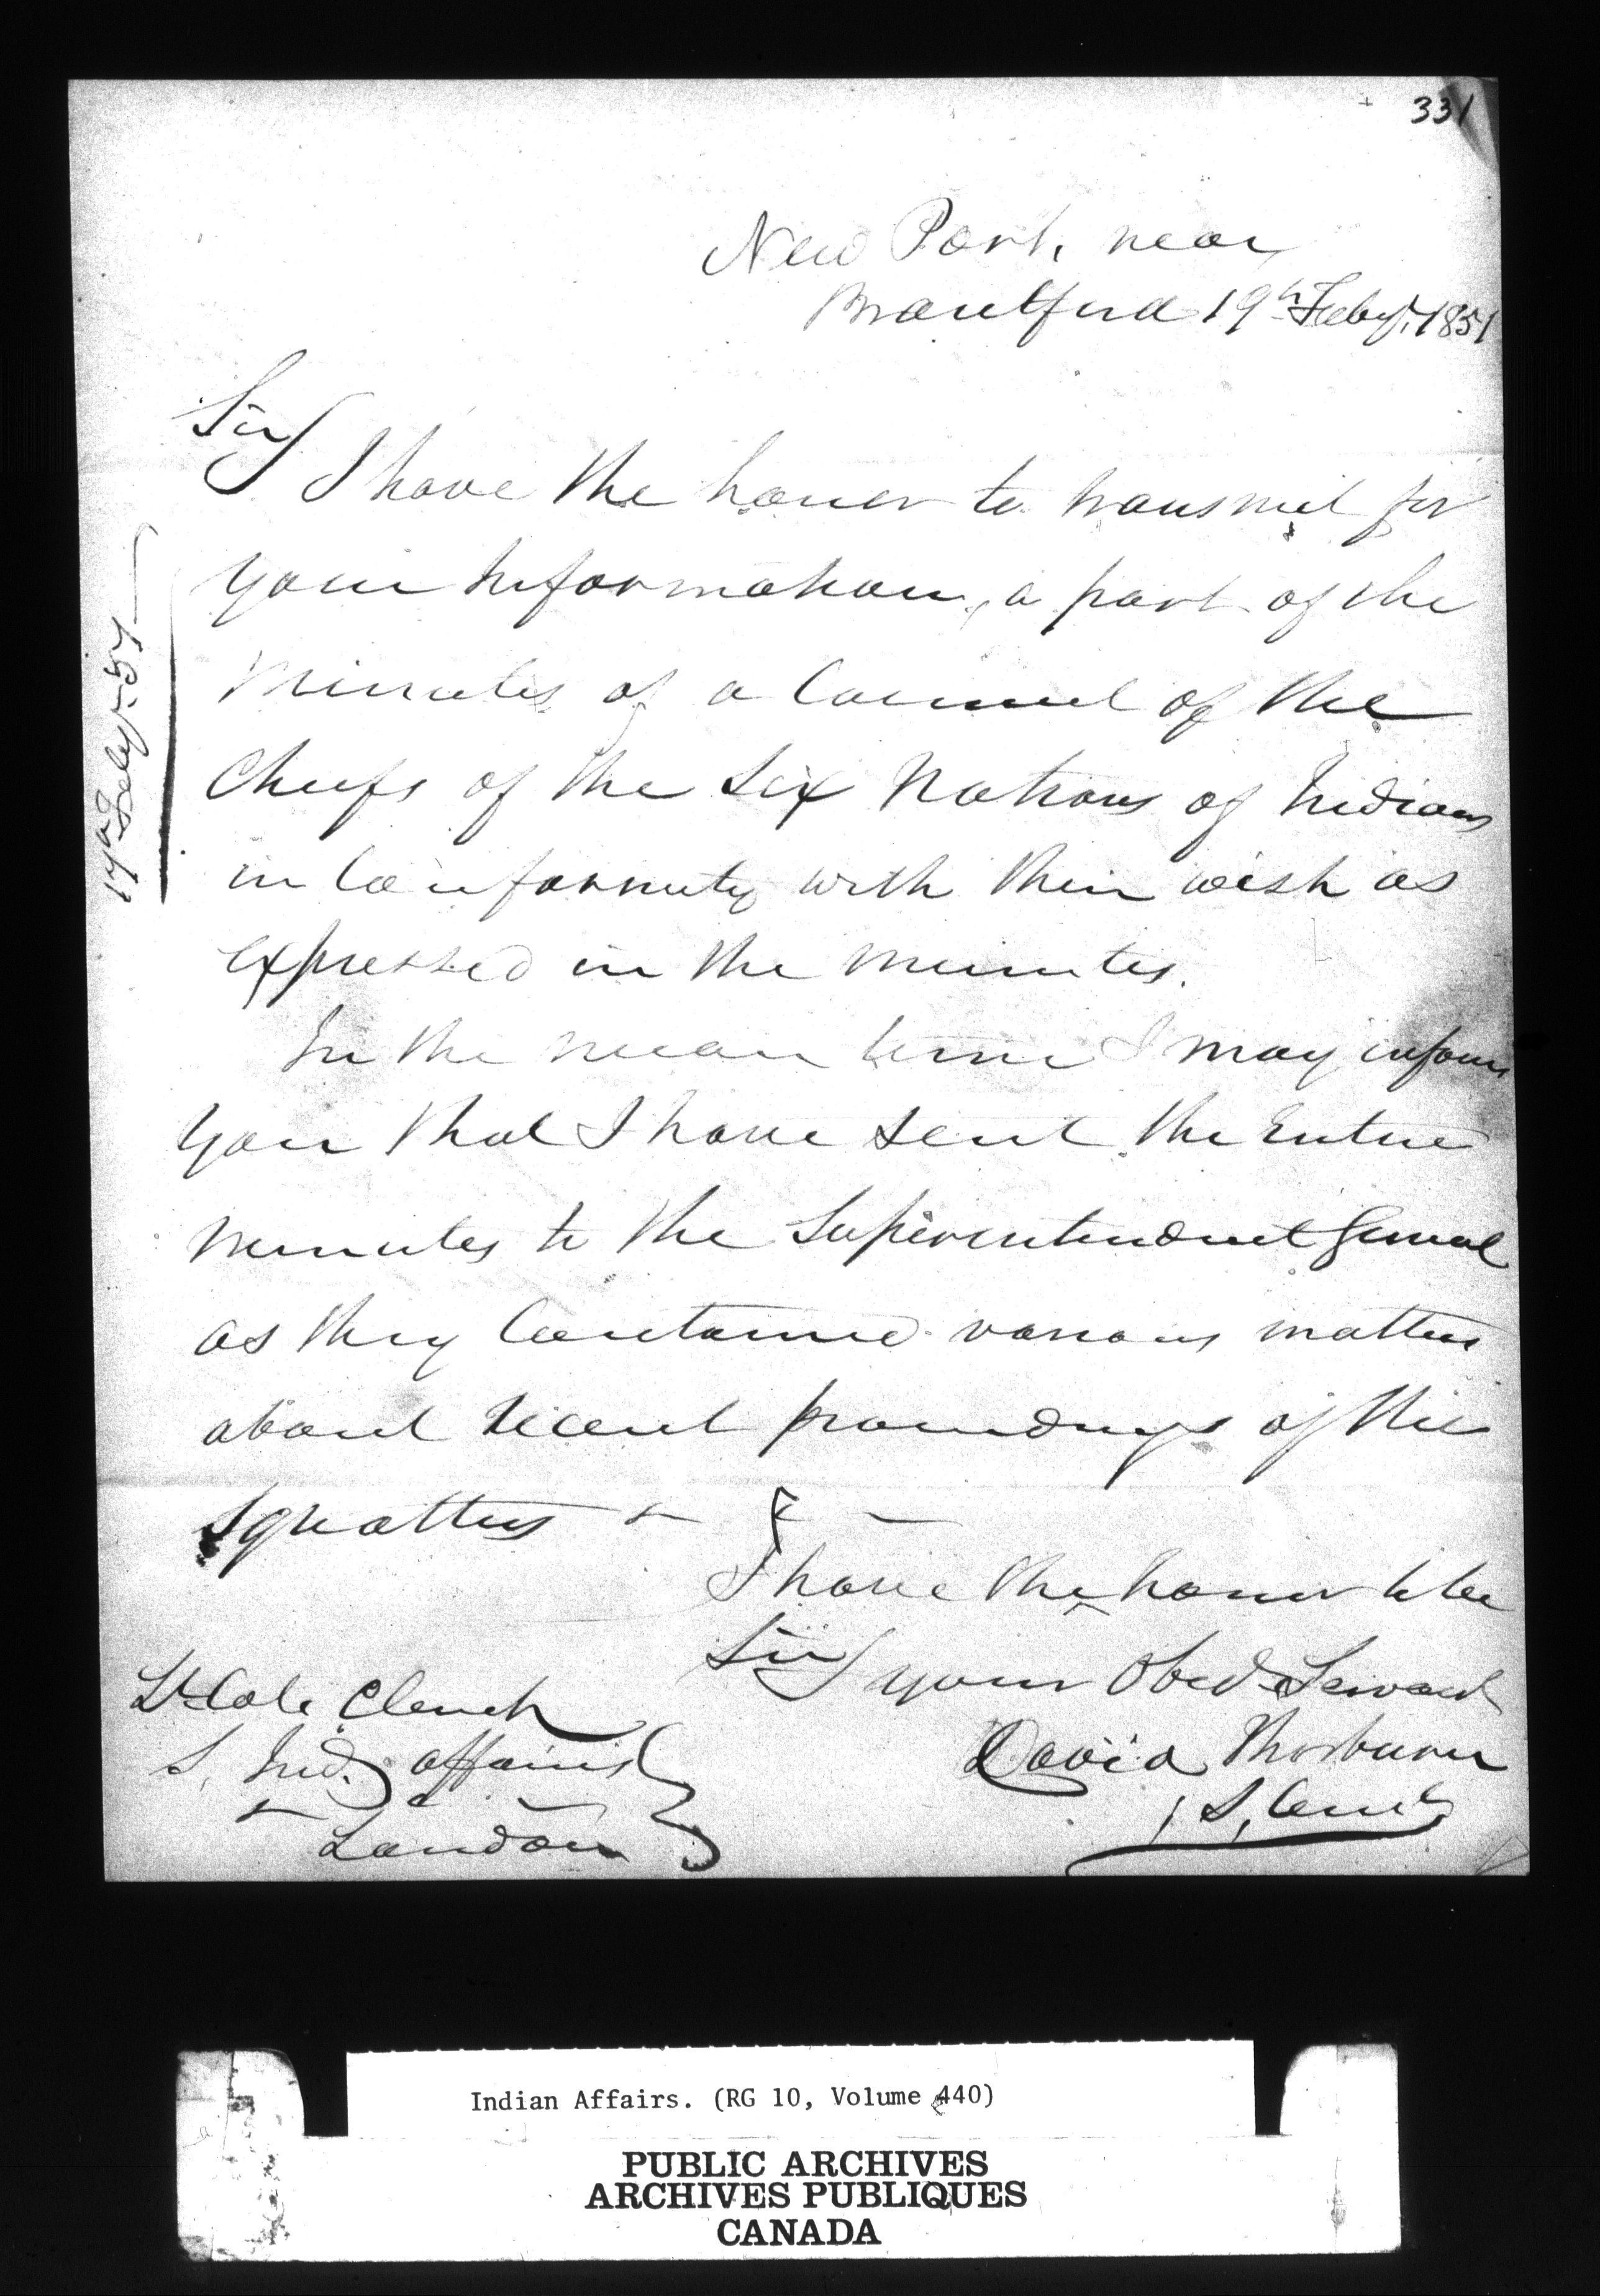 331
New Port, near
Brantford 19th Feby, 1851
Sir
I have the honor to transmit for
your information, a part of the
minutes of a Council of the
Chiefs of the Six Nations of Indians
in Conformity with their wish as
expressed in the minutes.
In the mean time I may inform
you that I have sent the Entire
minutes to the Superintendent General
as they Contained various matters
about recent proceedings of the
squatters
I have the honor to be
Sir your Obed Servant
David Thorburn
Lt Col. Clench
S. Ind. affairs
London
17th Feby. 51
Indian Affairs. (RG 10, Volume 440)
PUBLIC ARCHIVES
ARCHIVES PUBLIQUES
CANADA